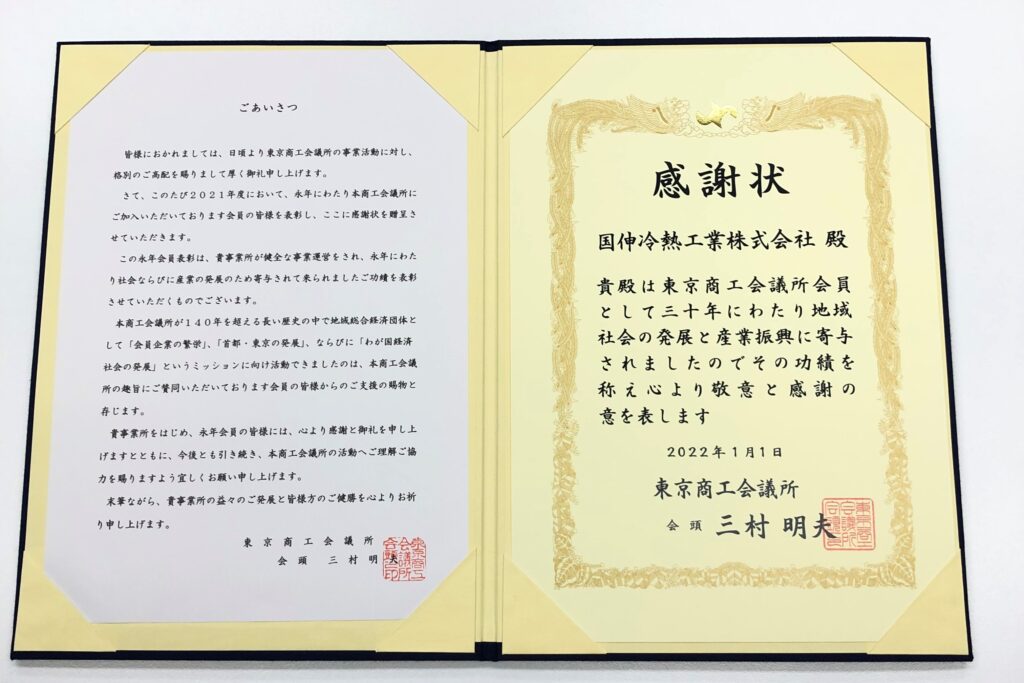 ごあいさつ
皆様におかれましては、日頃より東京商工会議所の事業活動に対し、
格別のご高配を賜りまして厚く御礼申し上げます。
さて、このたび2021年度において、永年にわたり本商工会議所に
ご加入いただいております会員の皆様を表彰し、ここに感謝状を贈呈さ
せていただきます。
この永年会員表彰は、貴事業所が健全な事業運営をされ、永年にわた
り社会ならびに産業の発展のため寄与されて来られましたご功績を表彰
させていただくものでございます。
本商工会議所が140年を超える長い歴史の中で地域総合経済団体と
して「会員企業の繁栄」、「首都・東京の発展」、ならびに「わが国経済
社会の発展」というミッションに向け活動できましたのは、本商工会議
所の趣旨にご賛同いただいております会員の皆様からのご支援の賜物と
存じます。
貴事業所をはじめ、永年会員の皆様には、心より感謝と御礼を申し上
げますとともに、今後とも引き続き、本商工会議所の活動へご理解ご協
力を賜りますよう宜しくお願い申し上げます。
末筆ながら、貴事業所の益々のご発展と皆様方のご健勝を心よりお祈
り申し上げます。
東京商工会議所
会頭 三村明夫
感謝状
国伸冷熱工業株式会社 殿
貴殿は東京商工会議所会員
として三十年にわたり地域
社会の発展と産業振興に寄与
されましたのでその功績を
称え心より敬意と感謝の
意を表します
2022年1月1日
東京商工会議所
会頭 三村明夫